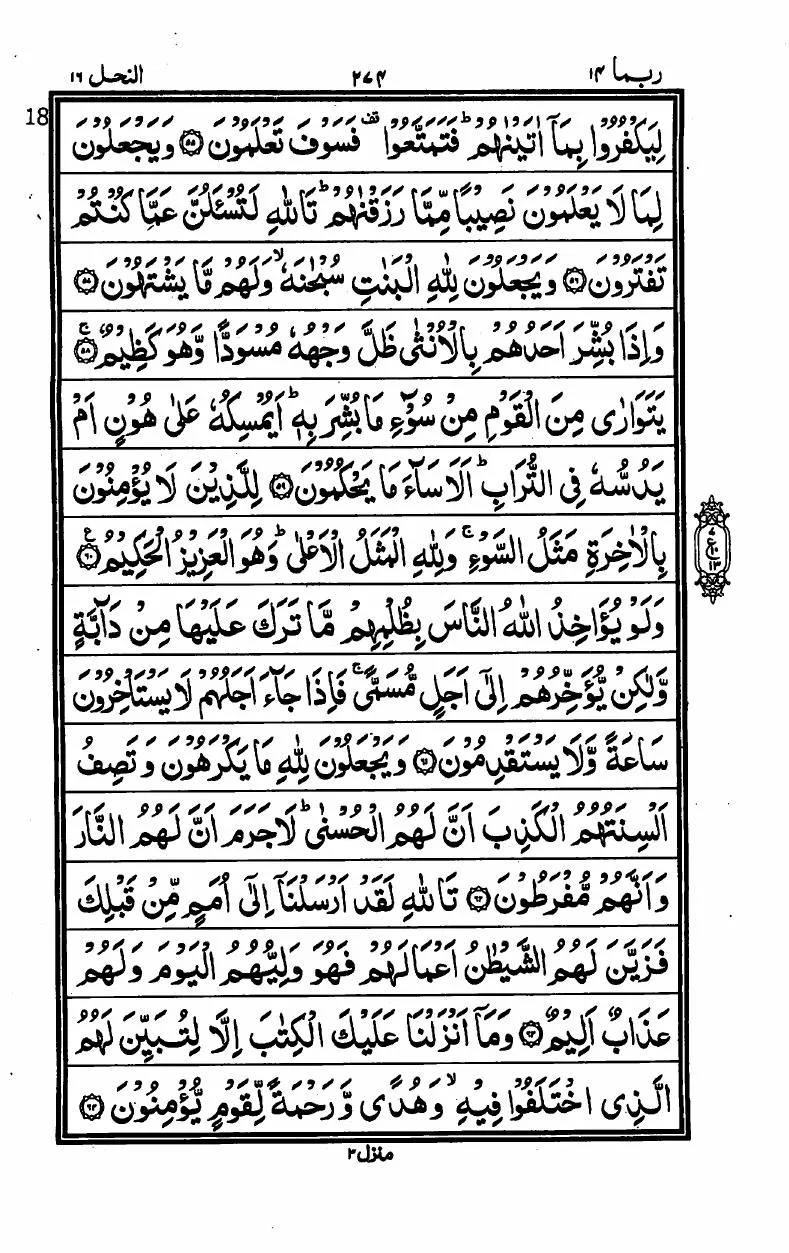 ربما ۱۴
۲۷۴
النحل ۱۶
18
لِيَكْفُرُوْا بِمَاۤ اٰتَيْنٰهُمْ ؕ فَتَمَتَّعُوْا ۫ فَسَوْفَ تَعْلَمُوْنَ ۝۵۵ وَيَجْعَلُوْنَ
لِمَا لَا يَعْلَمُوْنَ نَصِيْبًا مِّمَّا رَزَقْنٰهُمْ ؕ تَاللّٰهِ لَتُسْـَٔلُنَّ عَمَّا كُنْتُمْ
تَفْتَرُوْنَ ۝۵۶ وَيَجْعَلُوْنَ لِلّٰهِ الْبَنٰتِ سُبْحٰنَهٗ ۙ وَلَهُمْ مَّا يَشْتَهُوْنَ ۝۵۷
وَاِذَا بُشِّرَ اَحَدُهُمْ بِالْاُنْثٰى ظَلَّ وَجْهُهٗ مُسْوَدًّا وَّهُوَ كَظِيْمٌ ۚ ۝۵۸
يَتَوَارٰى مِنَ الْقَوْمِ مِنْ سُوْٓءِ مَا بُشِّرَ بِهٖ ؕ اَيُمْسِكُهٗ عَلٰى هُوْنٍ اَمْ
يَدُسُّهٗ فِى التُّرَابِ ؕ اَلَا سَآءَ مَا يَحْكُمُوْنَ ۝۵۹ لِلَّذِيْنَ لَا يُؤْمِنُوْنَ
بِالْاٰخِرَةِ مَثَلُ السَّوْءِ ۚ وَلِلّٰهِ الْمَثَلُ الْاَعْلٰى ؕ وَهُوَ الْعَزِيْزُ الْحَكِيْمُ ۝۶۰ ع
وَلَوْ يُؤَاخِذُ اللّٰهُ النَّاسَ بِظُلْمِهِمْ مَّا تَرَكَ عَلَيْهَا مِنْ دَآبَّةٍ
وَّلٰكِنْ يُّؤَخِّرُهُمْ اِلٰٓى اَجَلٍ مُّسَمًّى ۚ فَاِذَا جَآءَ اَجَلُهُمْ لَا يَسْتَاْخِرُوْنَ
سَاعَةً وَّلَا يَسْتَقْدِمُوْنَ ۝۶۱ وَيَجْعَلُوْنَ لِلّٰهِ مَا يَكْرَهُوْنَ وَتَصِفُ
اَلْسِنَتُهُمُ الْكَذِبَ اَنَّ لَهُمُ الْحُسْنٰى ؕ لَا جَرَمَ اَنَّ لَهُمُ النَّارَ
وَاَنَّهُمْ مُّفْرَطُوْنَ ۝۶۲ تَاللّٰهِ لَقَدْ اَرْسَلْنَاۤ اِلٰٓى اُمَمٍ مِّنْ قَبْلِكَ
فَزَيَّنَ لَهُمُ الشَّيْطٰنُ اَعْمَالَهُمْ فَهُوَ وَلِيُّهُمُ الْيَوْمَ وَلَهُمْ
عَذَابٌ اَلِيْمٌ ۝۶۳ وَمَاۤ اَنْزَلْنَا عَلَيْكَ الْكِتٰبَ اِلَّا لِتُبَيِّنَ لَهُمُ
الَّذِى اخْتَلَفُوْا فِيْهِ ۙ وَهُدًى وَّرَحْمَةً لِّقَوْمٍ يُّؤْمِنُوْنَ ۝۶۴
منزل ۳